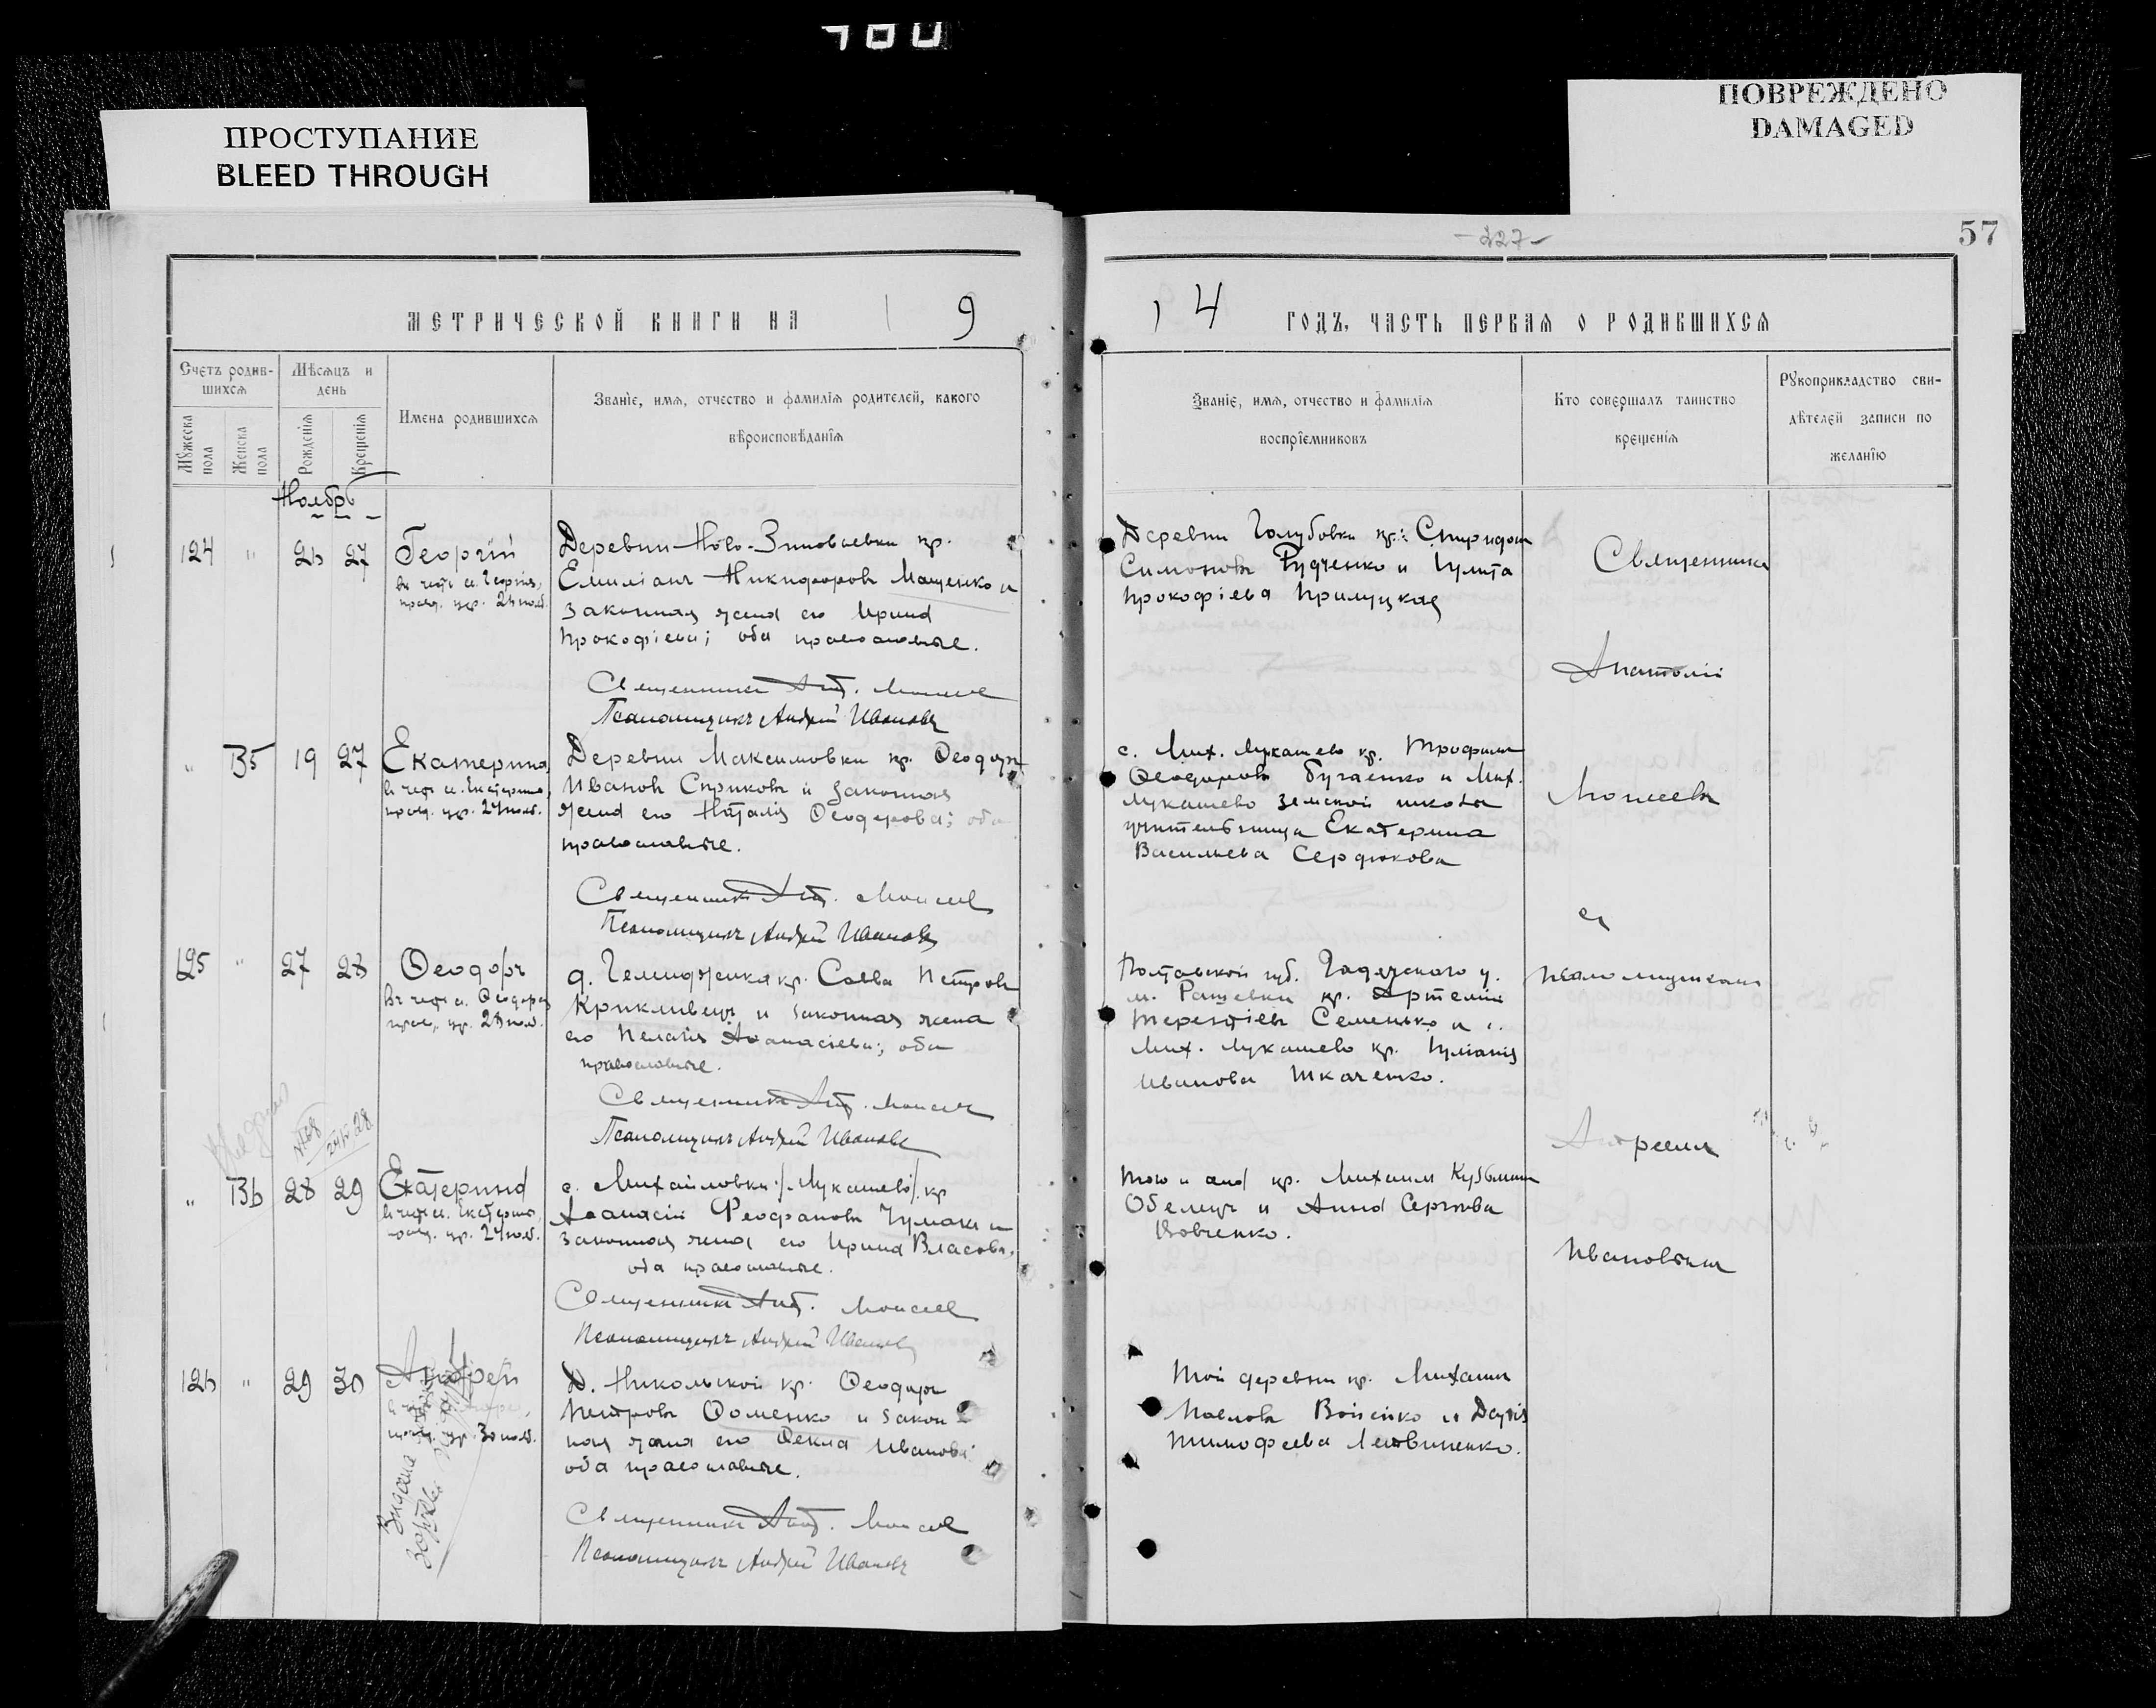 ПРОСТУПАНИЕ
BLEED THROUGH
ПОВРЕЖДЕНО
DAMAGED
57
МЕТРИЧЕСКОЙ КНИГИ НА 19
14 ГОДЪ, ЧАСТЬ ПЕРВАЯ О РОДИВШИХСЯ
Счетъ родив-
шихся
Мужеска пола
Женска пола
Мѣсяцъ и
день
Рожденія
Крещенія
Имена родившихся
Званіе, имя, отчество и фамилія родителей, какого
вѣроисповѣданія
Званіе, имя, отчество и фамилія
воспріемниковъ
Кто совершалъ таинство
крещенія
Рукоприкладство сви-
дѣтелей записи по
желанію
Ноябрь
124 " 26 27 Георгій
въ честь св. Георгія,
празд. цр. 26 нояб.
Деревни Ново-Зиновьевки кр.
Емиліанъ Никифоровъ Мащенко и
законная жена его Ирина
Прокофіева; оба православные.
Священникъ Анат. Моисеевъ
Псаломщикъ Андрей Ивановъ
Деревни Голубовки кр. Спиридонъ
Симоновъ Рудченко и Іулита
Прокофіева Прилуцкая
" 135 19 27 Екатерина,
въ честь св. Екатерины,
празд. цр. 24 нояб.
Деревни Максимовки кр. Ѳеодоръ
Ивановъ Сприковъ и законная
жена его Наталія Ѳеодорова; оба
православные.
Священникъ Анат. Моисеевъ
Псаломщикъ Андрей Ивановъ
с. Мих. Лукашево кр. Трофимъ
Ѳеодоровъ Бугаенко и Мих.
Лукашево земской школы
учительница Екатерина
Васильева Сердюкова
125 " 27 28 Ѳеодоръ
въ честь св. Ѳеодора
празд. цр. 28 нояб.
д. Петров
Крикливецъ и законная жена
его Пелагія Аѳанасіева; оба
православные.
Священникъ Анат. Моисеевъ
Псаломщикъ Андрей Ивановъ
Полтавской губ. Гадячского у.
м. Рашевки кр. Артемій
Терентіевъ Семенько и с.
Мих. Лукашево кр. Іуліанія
Иванова Ткаченко.
" 136 28 29 Екатерина
въ честь св. Екатерины,
празд. цр. 24 нояб.
с. Михайловки /Лукашево/ кр.
Аѳанасій Феофановъ Чумакъ и
законная жена его Ирина Власова,
оба православные.
Священникъ Анат. Моисеевъ
Псаломщикъ Андрей Ивановъ
Того и села кр. Михаилъ Кузьминъ
Обелецъ и Анна Сергѣева
Вовченко.
126 " 29 30 Андрей
празд. цр. 30 нояб.
Д. Никольской кр. Ѳеодоръ
Петровъ Ѳоменко и закон-
ная жена его Ѳекла Иванова
оба православные.
Священникъ Анат. Моисеевъ
Псаломщикъ Андрей Ивановъ
Той деревни кр. Михаилъ
Павловъ Войсійко и Дарія
Тимофеева Литвиненко.
Священникъ
Анатолій
Моисеевъ
съ
псаломщикомъ
Андреемъ
Ивановымъ